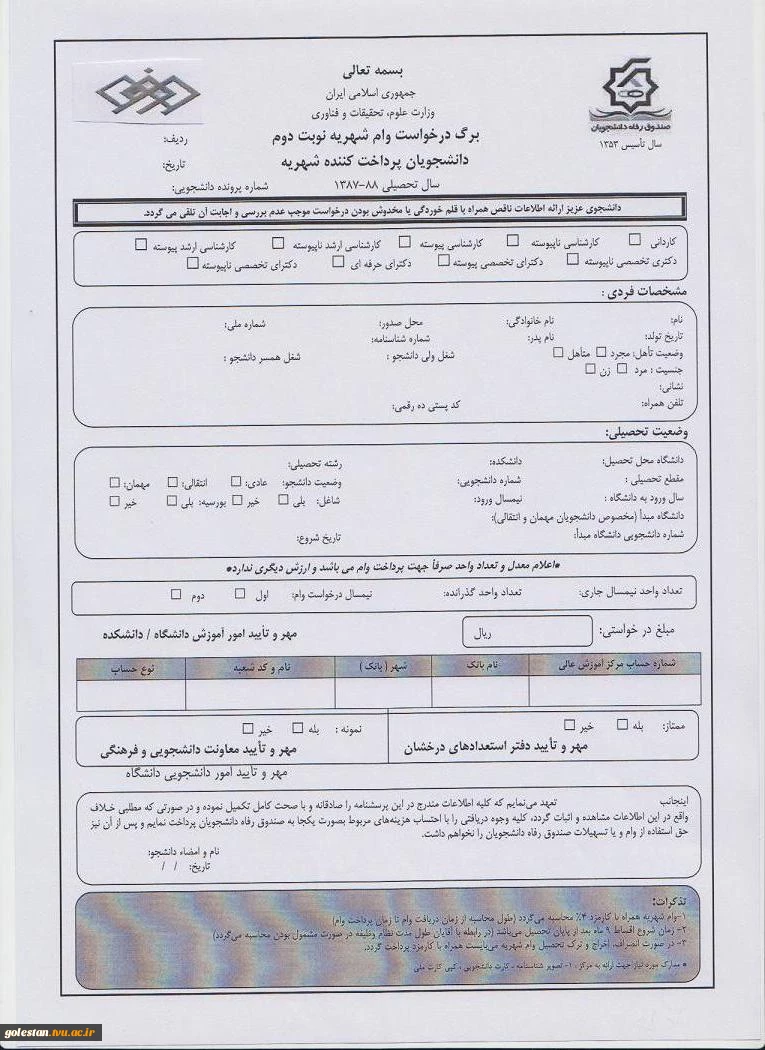 بسمه تعالی
جمهوری اسلامی ایران
وزارت علوم، تحقیقات و فناوری
برگ درخواست وام شهریه نوبت دوم
دانشجویان پرداخت کننده شهریه
سال تحصیلی ۸۸-۱۳۸۷
صندوق رفاه دانشجویان
سال تأسیس ۱۳۵۳
ردیف:
تاریخ:
شماره پرونده دانشجویی:
دانشجوی عزیز ارائه اطلاعات ناقص همراه با قلم خوردگی یا مخدوش بودن درخواست موجب عدم بررسی و اجابت آن تلقی می گردد.
کاردانی □ کارشناسی ناپیوسته □ کارشناسی پیوسته □ کارشناسی ارشد ناپیوسته □ کارشناسی ارشد پیوسته □
دکتری تخصصی ناپیوسته □ دکترای تخصصی پیوسته □ دکترای حرفه ای □ دکترای تخصصی ناپیوسته □
مشخصات فردی :
نام: نام خانوادگی: محل صدور: شماره ملی:
تاریخ تولد: نام پدر: شماره شناسنامه:
وضعیت تأهل: مجرد □ متأهل □ شغل ولی دانشجو : شغل همسر دانشجو :
جنسیت : مرد □ زن □
نشانی:
تلفن همراه: کد پستی ده رقمی:
وضعیت تحصیلی:
دانشگاه محل تحصیل: دانشکده: رشته تحصیلی:
مقطع تحصیلی : شماره دانشجویی: وضعیت دانشجو: عادی: □ انتقالی: □ مهمان: □
سال ورود به دانشگاه : نیمسال ورود: شاغل: بلی □ خیر □ بورسیه: بلی □ خیر □
دانشگاه مبدأ (مخصوص دانشجویان مهمان و انتقالی):
شماره دانشجویی دانشگاه مبدأ: تاریخ شروع:
*اعلام معدل و تعداد واحد صرفاً جهت پرداخت وام می باشد و ارزش دیگری ندارد*
تعداد واحد نیمسال جاری: تعداد واحد گذرانده: نیمسال درخواست وام: اول □ دوم □
مبلغ در خواستی: ریال مهر و تأیید امور آموزش دانشگاه / دانشکده
شماره حساب مرکز آموزش عالی نام بانک شهر ( بانک ) نام و کد شعبه نوع حساب
ممتاز: بله □ خیر □ نمونه : بله □ خیر □
مهر و تأیید دفتر استعدادهای درخشان مهر و تأیید معاونت دانشجویی و فرهنگی
مهر و تأیید امور دانشجویی دانشگاه
اینجانب تعهد می‌نمایم که کلیه اطلاعات مندرج در این پرسشنامه را صادقانه و با صحت کامل تکمیل نموده و در صورتی که مطلبی خلاف
واقع در این اطلاعات مشاهده و اثبات گردد، کلیه وجوه دریافتی را با احتساب هزینه‌های مربوط بصورت یکجا به صندوق رفاه دانشجویان پرداخت نمایم و پس از آن نیز
حق استفاده از وام و یا تسهیلات صندوق رفاه دانشجویان را نخواهم داشت.
نام و امضاء دانشجو:
تاریخ: / /
تذکرات:
۱-وام شهریه همراه با کارمزد ۴٪ محاسبه می‌گردد (طول محاسبه از زمان دریافت وام تا زمان پرداخت وام)
۲- زمان شروع اقساط ۹ ماه بعد از پایان تحصیل می‌باشد (در رابطه با آقایان طول مدت نظام وظیفه در صورت مشمول بودن محاسبه می‌گردد)
۳- در صورت انصراف، اخراج و ترک تحصیل وام شهریه می‌بایست همراه با کارمزد پرداخت گردد.
* مدارک مورد نیاز جهت ارائه به مرکز : ۱- تصویر شناسنامه ، کارت دانشجویی ، کپی کارت ملی
golestan.tvu.ac.ir